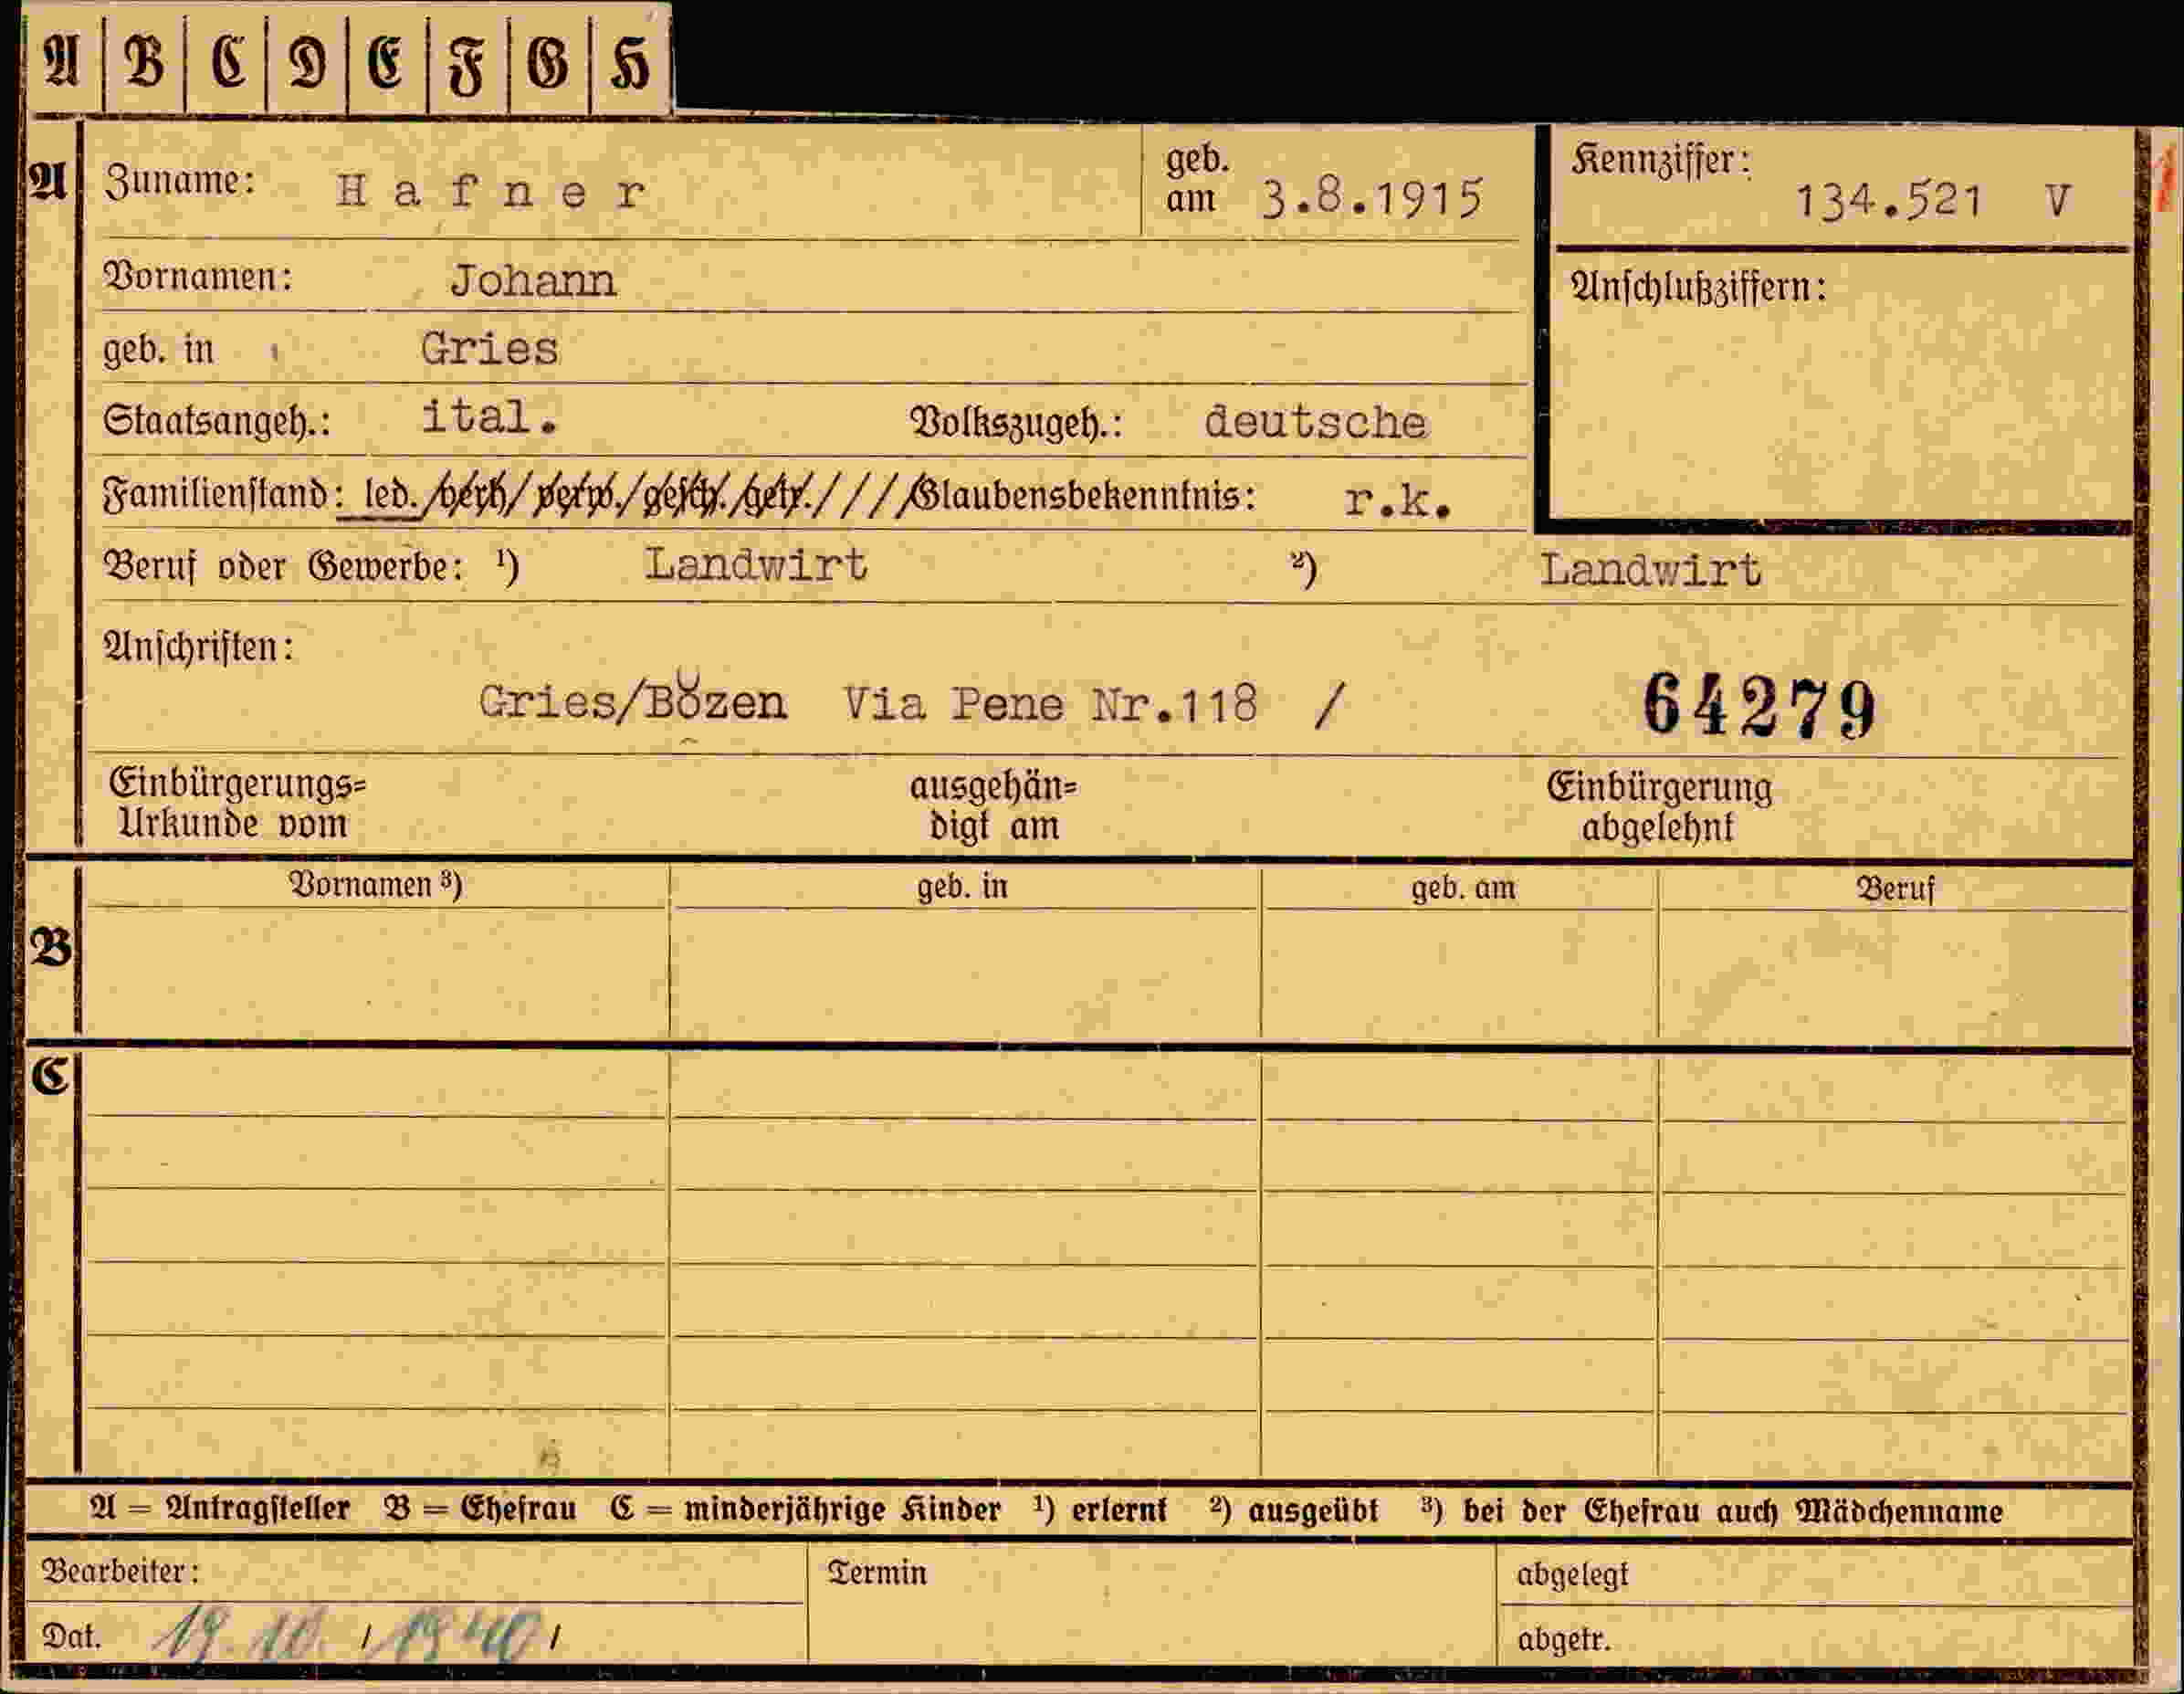 A B C D E F G H
A Zuname: Hafner geb. am 3.8.1915 Kennziffer: 134.521 V
Vornamen: Johann Anschlußziffern:
geb. in Gries
Staatsangeh.: ital. Volkszugeh.: deutsche
Familienstand: led./verh/verw./gesch./getr./ / / /Glaubensbekenntnis: r.k.
Beruf oder Gewerbe: ¹) Landwirt ²) Landwirt
Anschriften:
Gries/Bozen Via Pene Nr.118 / 64279
Einbürgerungs= ausgehän= Einbürgerung
Urkunde vom digt am abgelehnt
B Vornamen ³) geb. in geb. am Beruf
C
A = Antragsteller B = Ehefrau C = minderjährige Kinder ¹) erlernt ²) ausgeübt ³) bei der Ehefrau auch Mädchenname
Bearbeiter: Termin abgelegt
Dat. 19.10. / 1940 / abgetr.